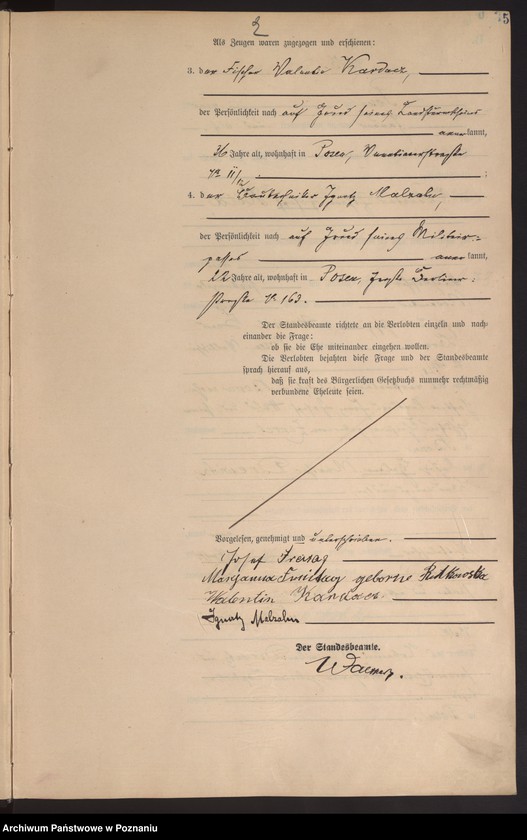 2
5
Als Zeugen waren zugezogen und erschienen:
3. der Fischer Valentin Kardacz,
der Persönlichkeit nach auf Grund seines Landsturmscheines
anerkannt,
36 Jahre alt, wohnhaft in Posen,
№ 11/12;
4. der Bautechniker Ignatz Malzahn,
der Persönlichkeit nach auf Grund seines Militär-
passes anerkannt,
22 Jahre alt, wohnhaft in Posen, Berliner-
straße № 163.
Der Standesbeamte richtete an die Verlobten einzeln und nach-
einander die Frage:
ob sie die Ehe miteinander eingehen wollen.
Die Verlobten bejahten diese Frage und der Standesbeamte
sprach hierauf aus,
daß sie kraft des Bürgerlichen Gesetzbuchs nunmehr rechtmäßig
verbundene Eheleute seien.
Vorgelesen, genehmigt und unterschrieben.
Josef Freitag
Maryanna Freitag geborne Rutkowska
Walentin Kardacz
Ignatz Malzahn
Der Standesbeamte.
Archiwum Państwowe w Poznaniu